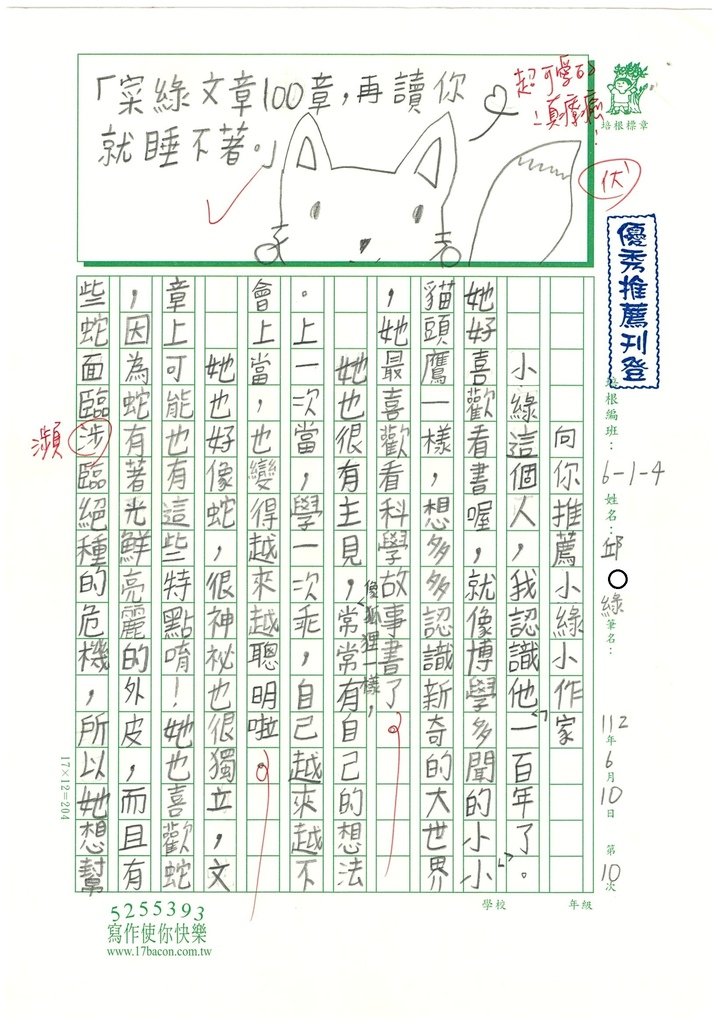 「寀綠文章100章，再讀你
就睡不著。」
超可愛的
真療癒
培根標章
伏
優秀推薦刊登
培根編班：6-1-4 姓名：邱○綠 筆名： 112年6月10日 第10次
向你推薦小綠小作家
小綠這個人，我認識他一百年了。
她好喜歡看書喔，就像博學多聞的小小
貓頭鷹一樣，想多多認識新奇的大世界
，她最喜歡看科學故事書了
像狐狸一樣，
她也很有主見，常常有自己的想法
。上一次當，學一次乖，自己越來越不
會上當，也變得越來越聰明啦
她也好像蛇，很神祕也很獨立，文
章上可能也有這些特點唷！她也喜歡蛇
，因為蛇有著光鮮亮麗的外皮，而且有
些蛇面臨涉臨絕種的危機，所以她想幫
瀕
17×12=204
學校 年級
5255393
寫作使你快樂
www.17bacon.com.tw